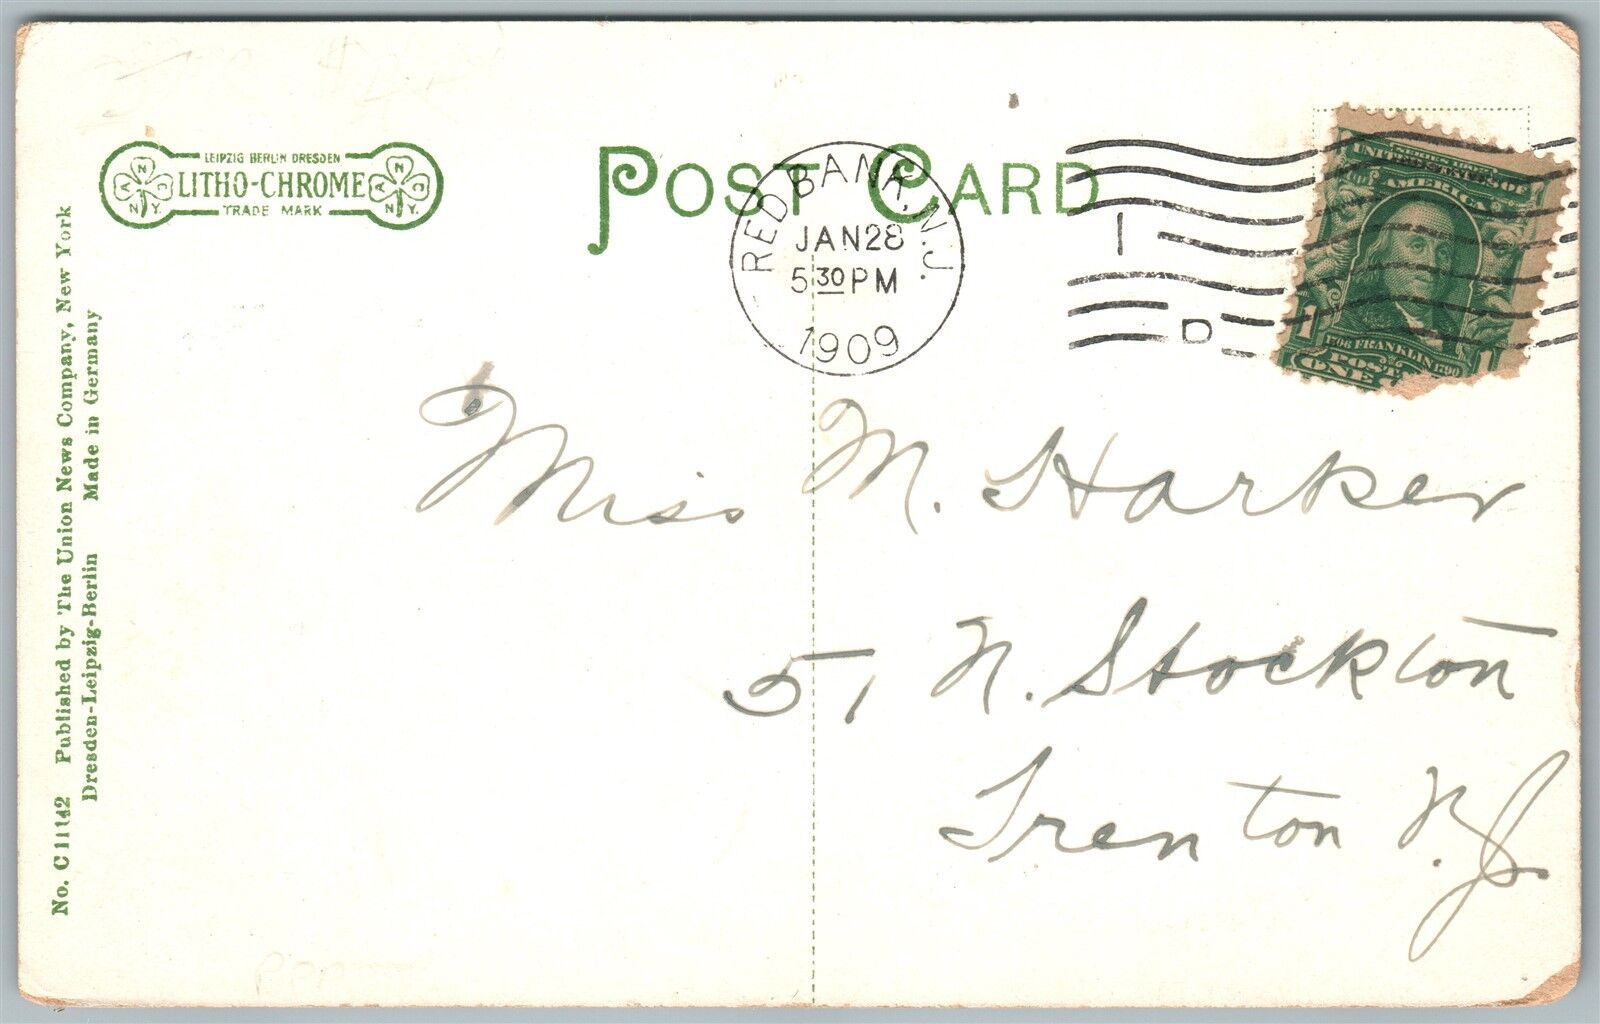 LEIPZIG BERLIN DRESDEN
LITHO-CHROME
TRADE MARK
N
A C
N.Y.
N
A C
N.Y.
POST CARD
RED BANK, N.J.
JAN 28
5 30 PM
1909
1
D
SERIES 1902
UNITED STATES OF
AMERICA
1706 FRANKLIN 1790
1 1
POST
ONE
No. C11142 Published by The Union News Company, New York
Dresden-Leipzig-Berlin Made in Germany
Miss M. Harker
51 N. Stockton
Trenton N.J.